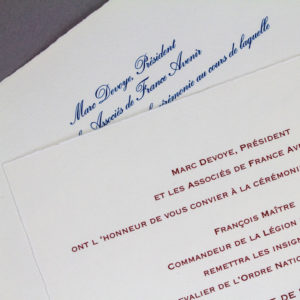 Marc Devoye, Président
Associés de France Avenir
cérémonie au cours de laquelle
MARC DEVOYE, PRÉSIDENT
ET LES ASSOCIÉS DE FRANCE AVE
ONT L'HONNEUR DE VOUS CONVIER À LA CÉRÉMONI
FRANÇOIS MAÎTRE
COMMANDEUR DE LA LÉGION
REMETTRA LES INSIGN
EVALIER DE L'ORDRE NATION